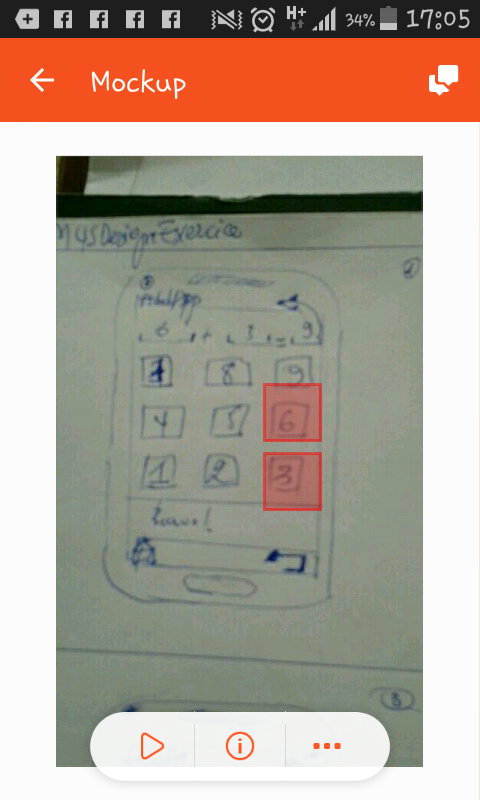 34% 17:05
Mockup
M4SDesignExercice
2
6 + 3 = 9
7 8 9
4 5 6
1 2 3
Bravo!
3